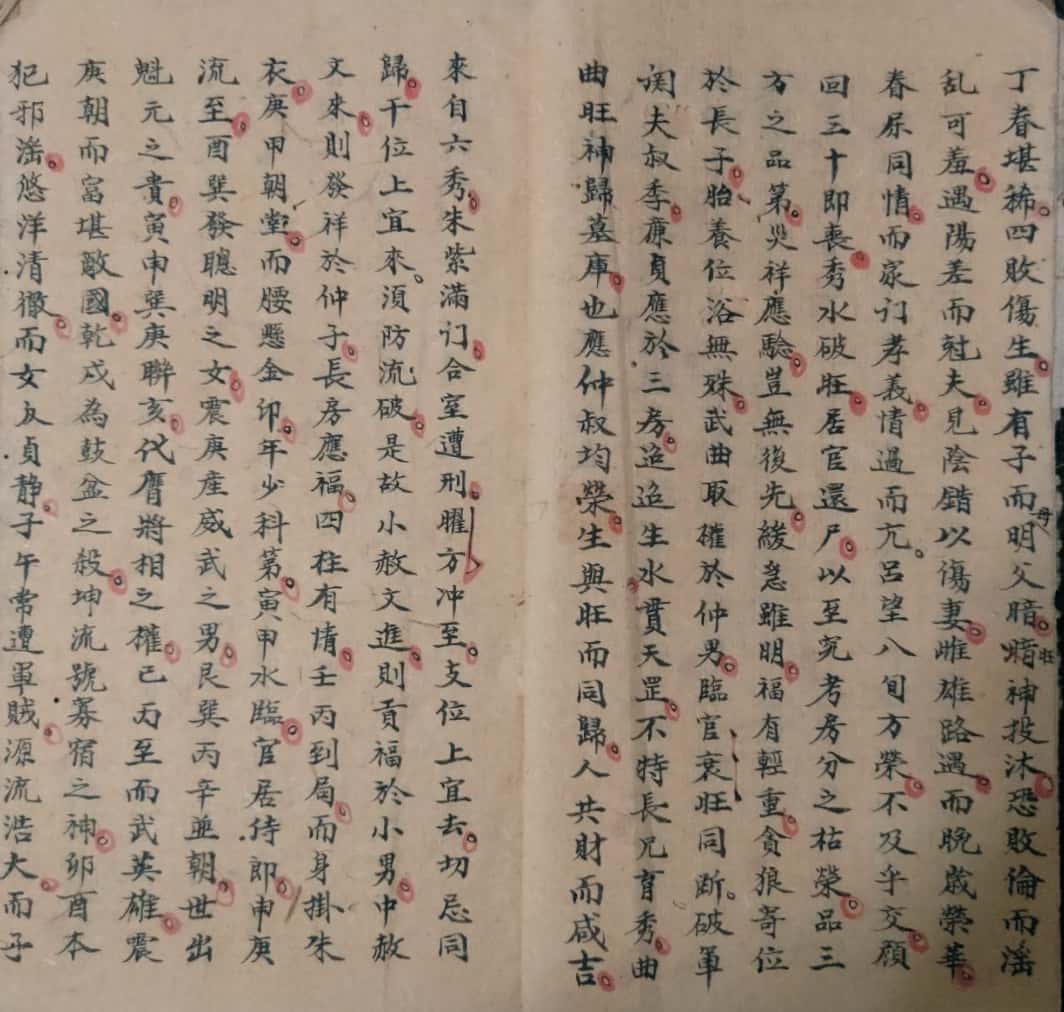 丁眷堪稀四敗傷生雖有子而明父暗暗神投沐恐敗倫而滛
母
旺
乱可羞遇陽差而尅夫見陰錯以傷妻雌雄路遇而晚歲榮華
眷屬同情而家门孝義情過而亢呂望八旬方榮不及乎交顏
回三十即喪秀水破旺居官還尸以至究考房分之枯榮品三
方之品第災祥應驗豈無後先緩急雖明福有輕重貪狼寄位
於長子胎養位浴無殊武曲取權於仲男臨官衰旺同斷破軍
関夫叔季廉貞應於三房迢迢生水貫天罡不特長兄育秀曲
曲旺神歸墓庫也應仲叔均榮生與旺而同歸人共財而咸吉
來自六秀朱紫滿门合室遭刑曜方冲至支位上宜去切忌同
歸干位上宜來須防流破是故小赦文進則貢福於小男中赦
文來則發祥於仲子長房應福四柱有情壬丙到局而身掛朱
衣庚甲朝堂而腰懸金印年少科第寅甲水臨官居侍郎申庚
流至酉巽發聰明之女震庚産威武之男艮巽丙辛並朝世出
魁元之貴寅申巽庚聯亥代膺將相之權己丙至而武英雄震
庚朝而富堪敵國乾戌為鼓盆之殺坤流號寡宿之神卯酉本
犯邪滛悠洋清徹而女友貞静子午常遭軍賊源流浩大而子